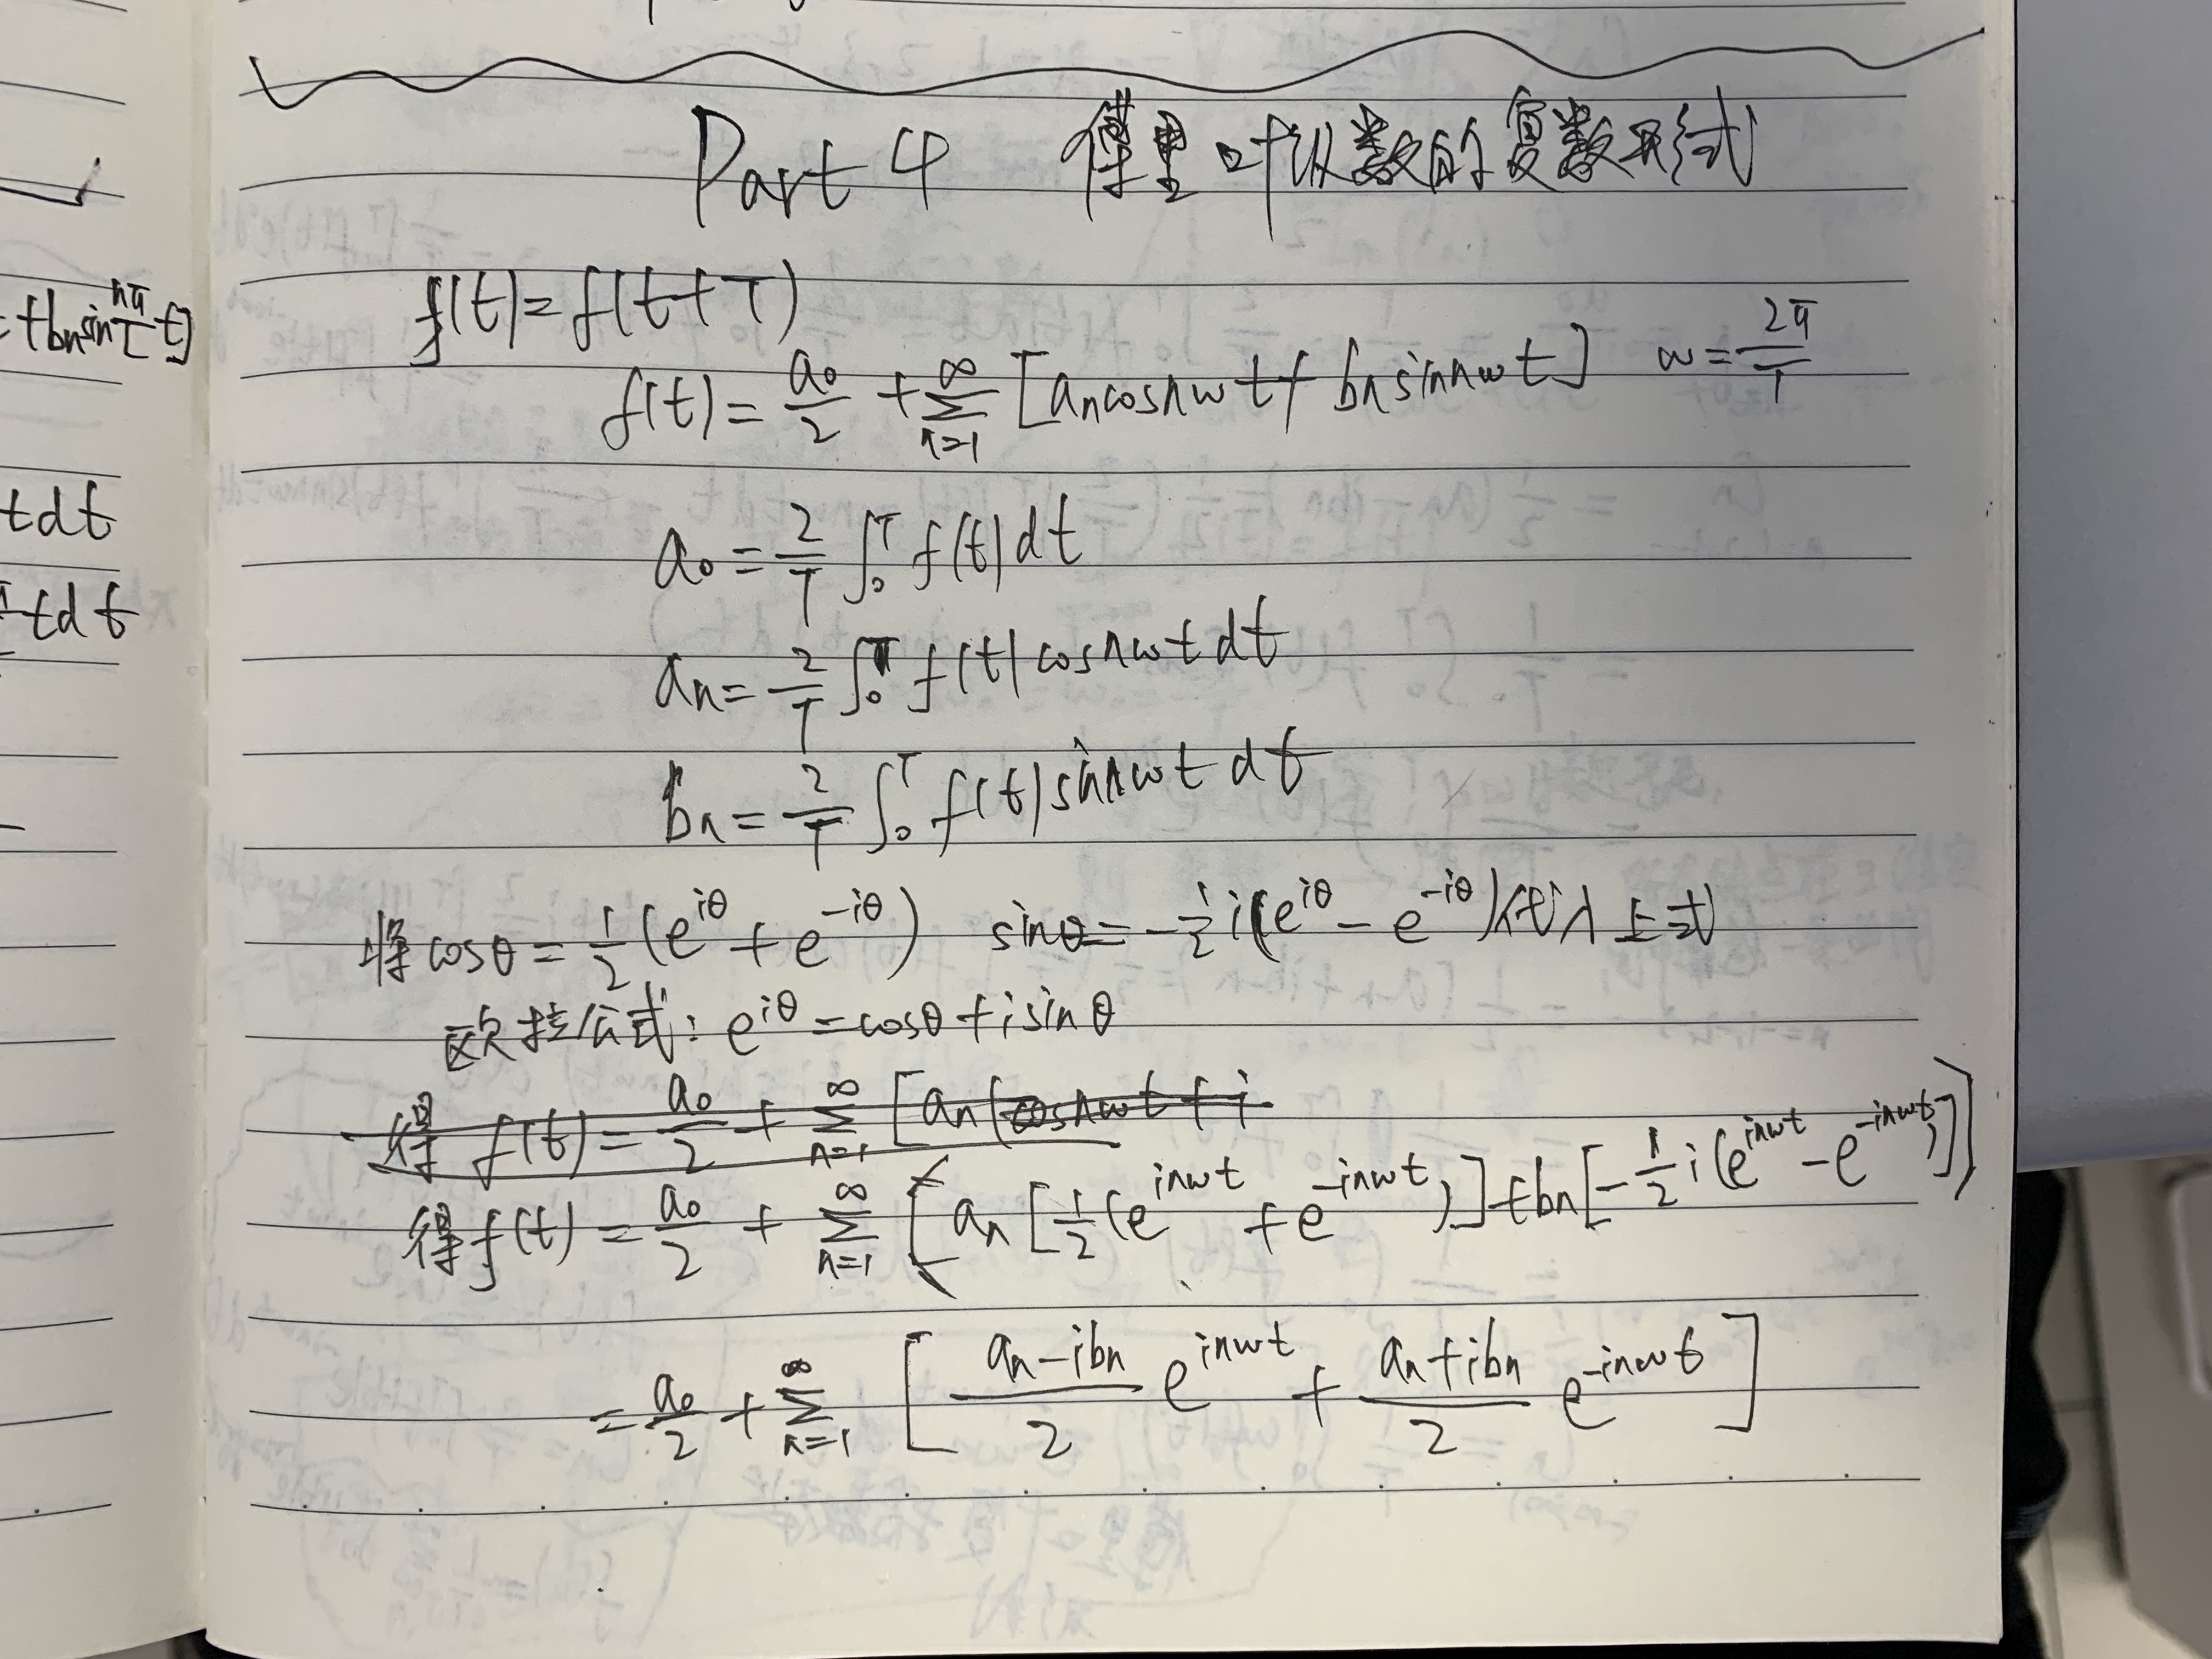 tdt
tdt
+bnsin nπ/T t]
Part 4 傅里叶级数的复数形式
f(t)=f(t+T)
f(t)=a0/2+∑n=1∞[ancosnωt+bnsinnωt] ω=2π/T
a0=2/T∫0T f(t)dt
an=2/T∫0T f(t)cosnωtdt
bn=2/T∫0T f(t)sinnωtdt
将cosθ=1/2(eiθ+e-iθ) sinθ=-1/2 i(eiθ-e-iθ)代入上式
欧拉公式: eiθ=cosθ+isinθ
得f(t)=a0/2+∑n=1∞[an(cosnωt+i
得f(t)=a0/2+∑n=1∞(an[1/2(einωt+e-inωt)]+bn[-1/2 i(einωt-e-inωt)])
=a0/2+∑n=1∞[an-ibn/2 einωt+an+ibn/2 e-inωt]